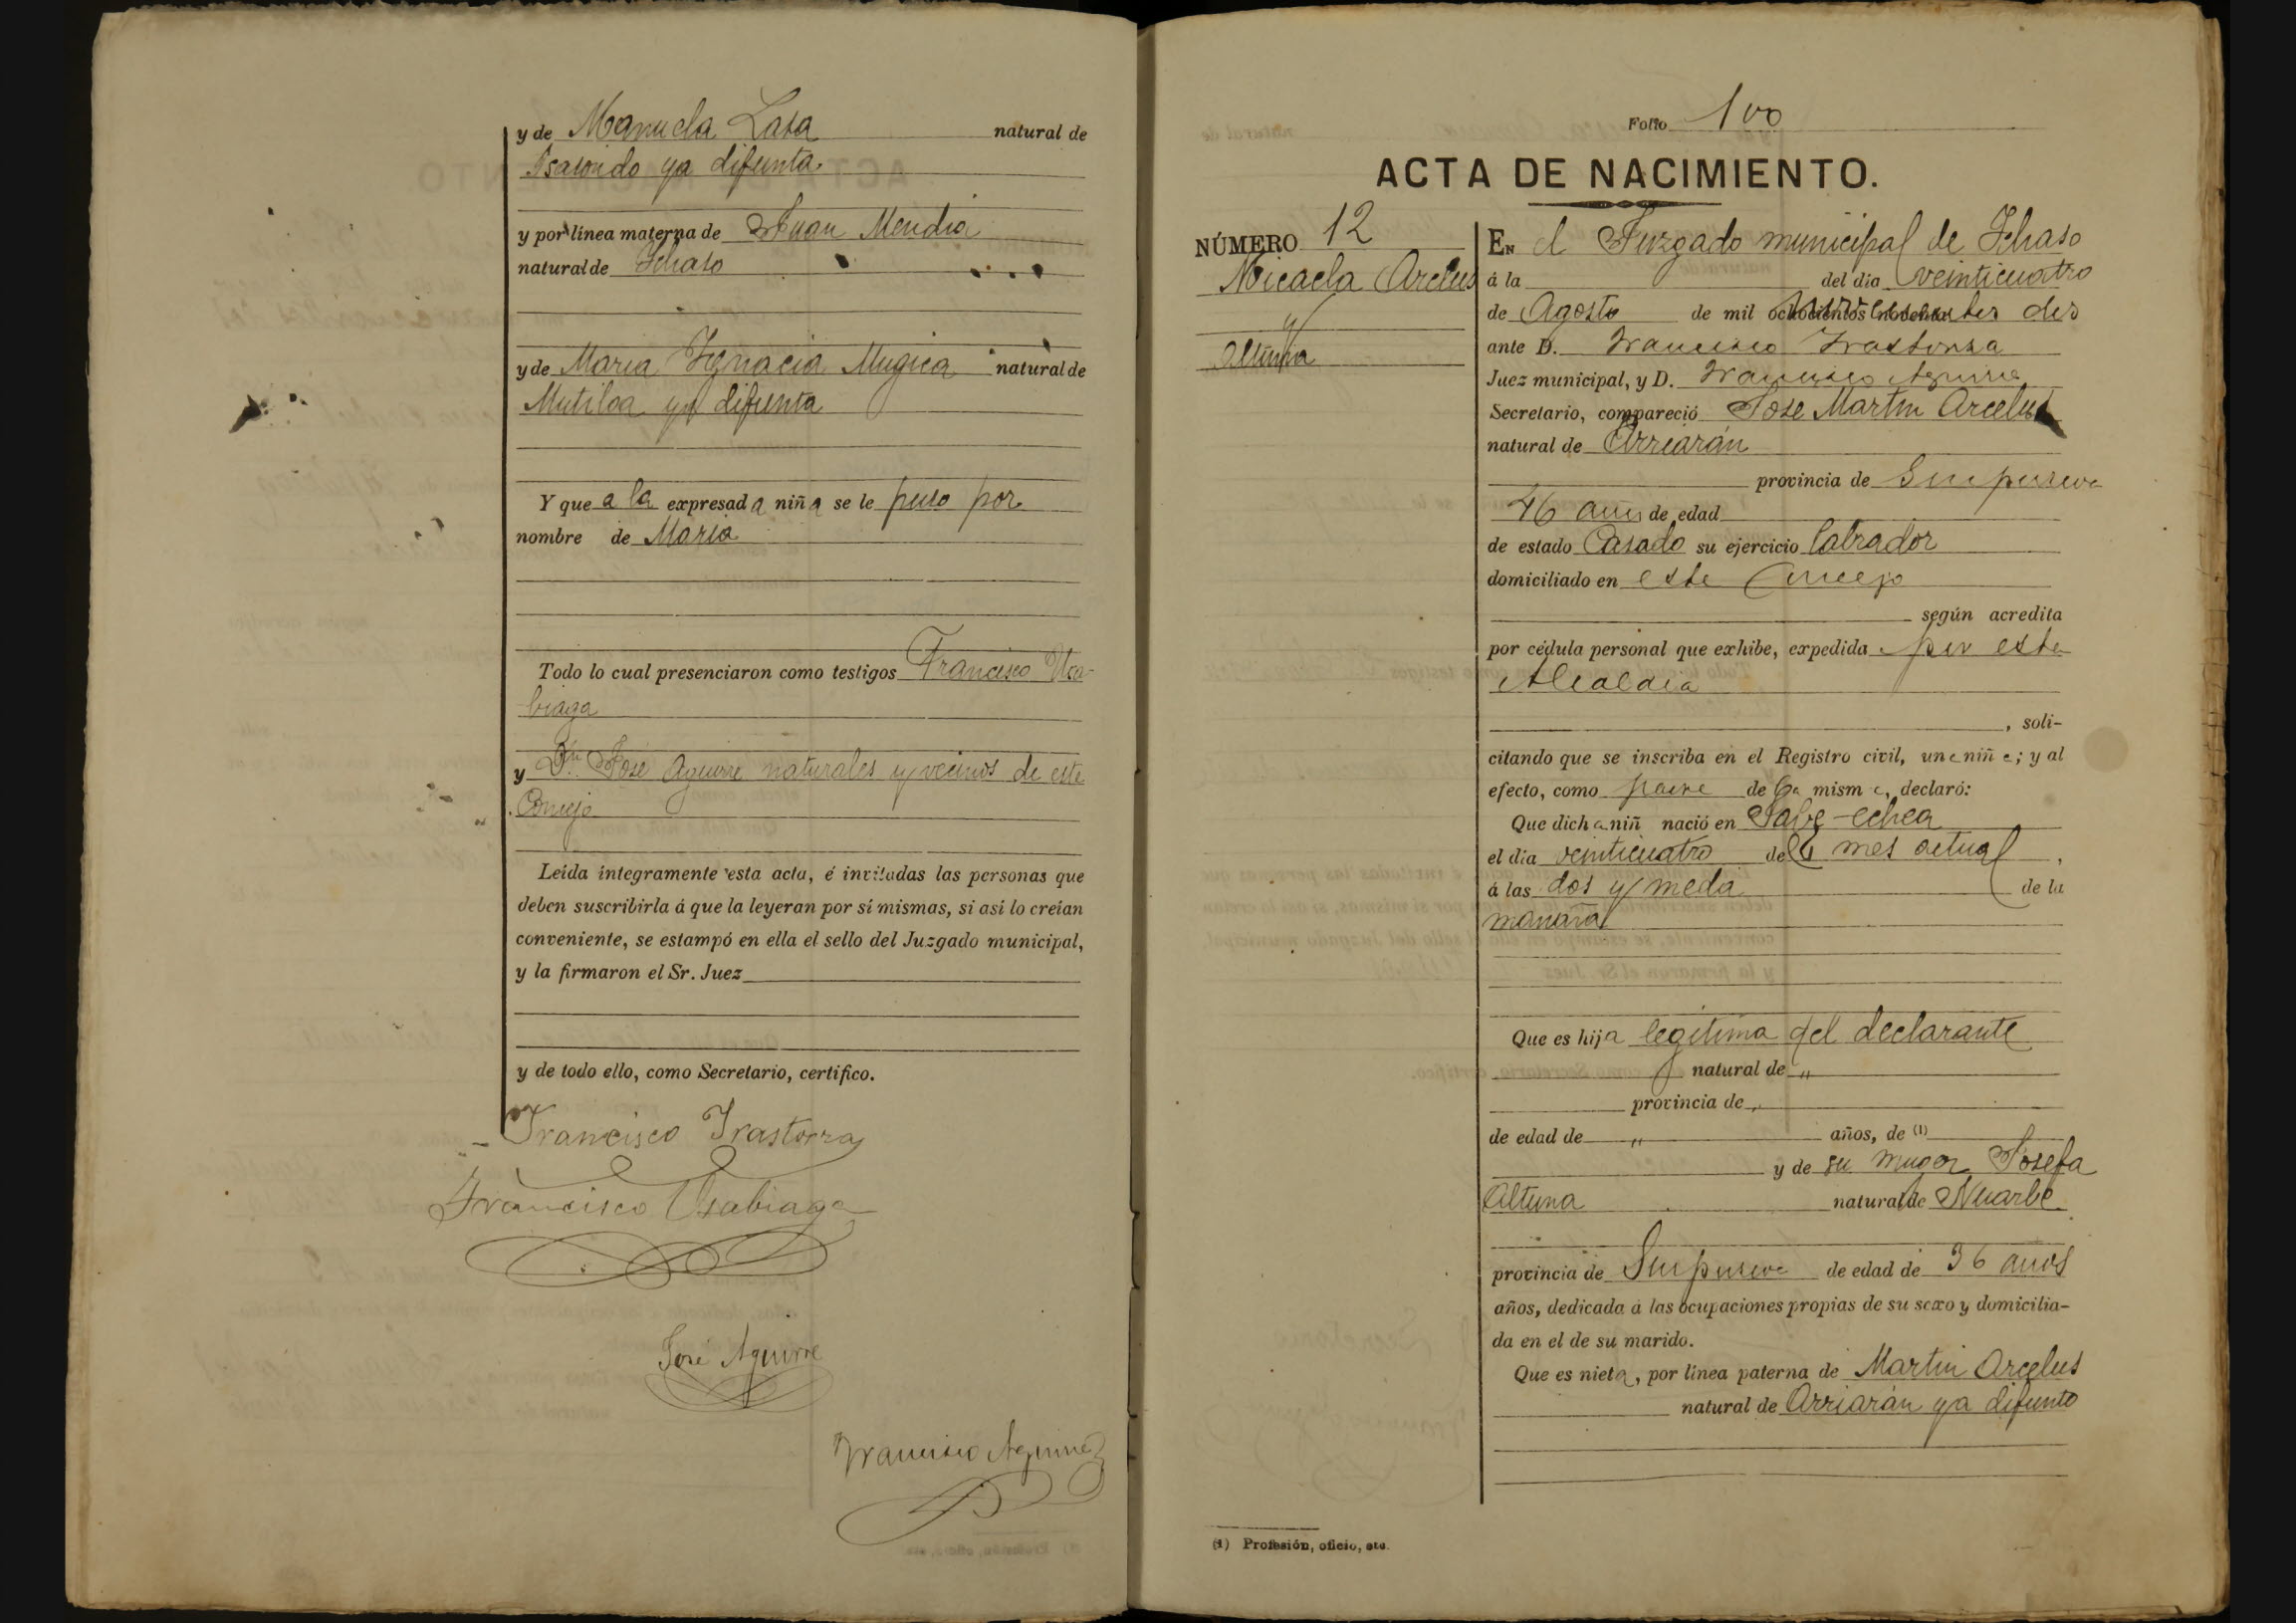 y de Manuela Lasa natural de
Isasondo ya difunta
y por línea materna de Juan Mendia
natural de Ichaso
y de Maria Ygnacia Mugica natural de
Mutiloa ya difunta
Y que a la expresada niña se le puso por
nombre de Maria
Todo lo cual presenciaron como testigos Francisco Usa-
biaga
y Dn José Aguirre naturales y vecinos de este
Concejo
Leída íntegramente esta acta, é invitadas las personas que
deben suscribirla á que la leyeran por sí mismas, si así lo creían
conveniente, se estampó en ella el sello del Juzgado municipal,
y la firmaron el Sr. Juez
y de todo ello, como Secretario, certifico.
Francisco Irastorza
Francisco Usabiaga
José Aguirre
Francisco Aguirre
Folio 100
ACTA DE NACIMIENTO.
NÚMERO 12
Micaela Arcelus
y
Altuna
En el Juzgado municipal de Ichaso
á la del día veinticuatro
de Agosto de mil novecientos dos
ante D. Francisco Irastorza
Juez municipal, y D. Francisco Aguirre
Secretario, compareció Jose Martin Arcelus
natural de Arriarán
provincia de Guipuzcoa
46 años de edad
de estado Casado su ejercicio labrador
domiciliado en este Concejo
según acredita
por cédula personal que exhibe, expedida por esta
Alcaldia
, soli-
citando que se inscriba en el Registro civil, una niña; y al
efecto, como padre de la misma, declaró:
Que dicha niñ nació en Salve-echea
el día veinticuatro del mes actual,
á las dos y meda de la
mañana
Que es hija legitima del declarante
natural de "
provincia de "
de edad de " años, de (1)
y de su muger Josefa
Altuna natural de Nuarbe
provincia de Guipuzcoa de edad de 36 años
años, dedicada á las ocupaciones propias de su sexo y domicilia-
da en el de su marido.
Que es nieta, por línea paterna de Martin Arcelus
natural de Arriarán ya difunto
(1) Profesión, oficio, etc.